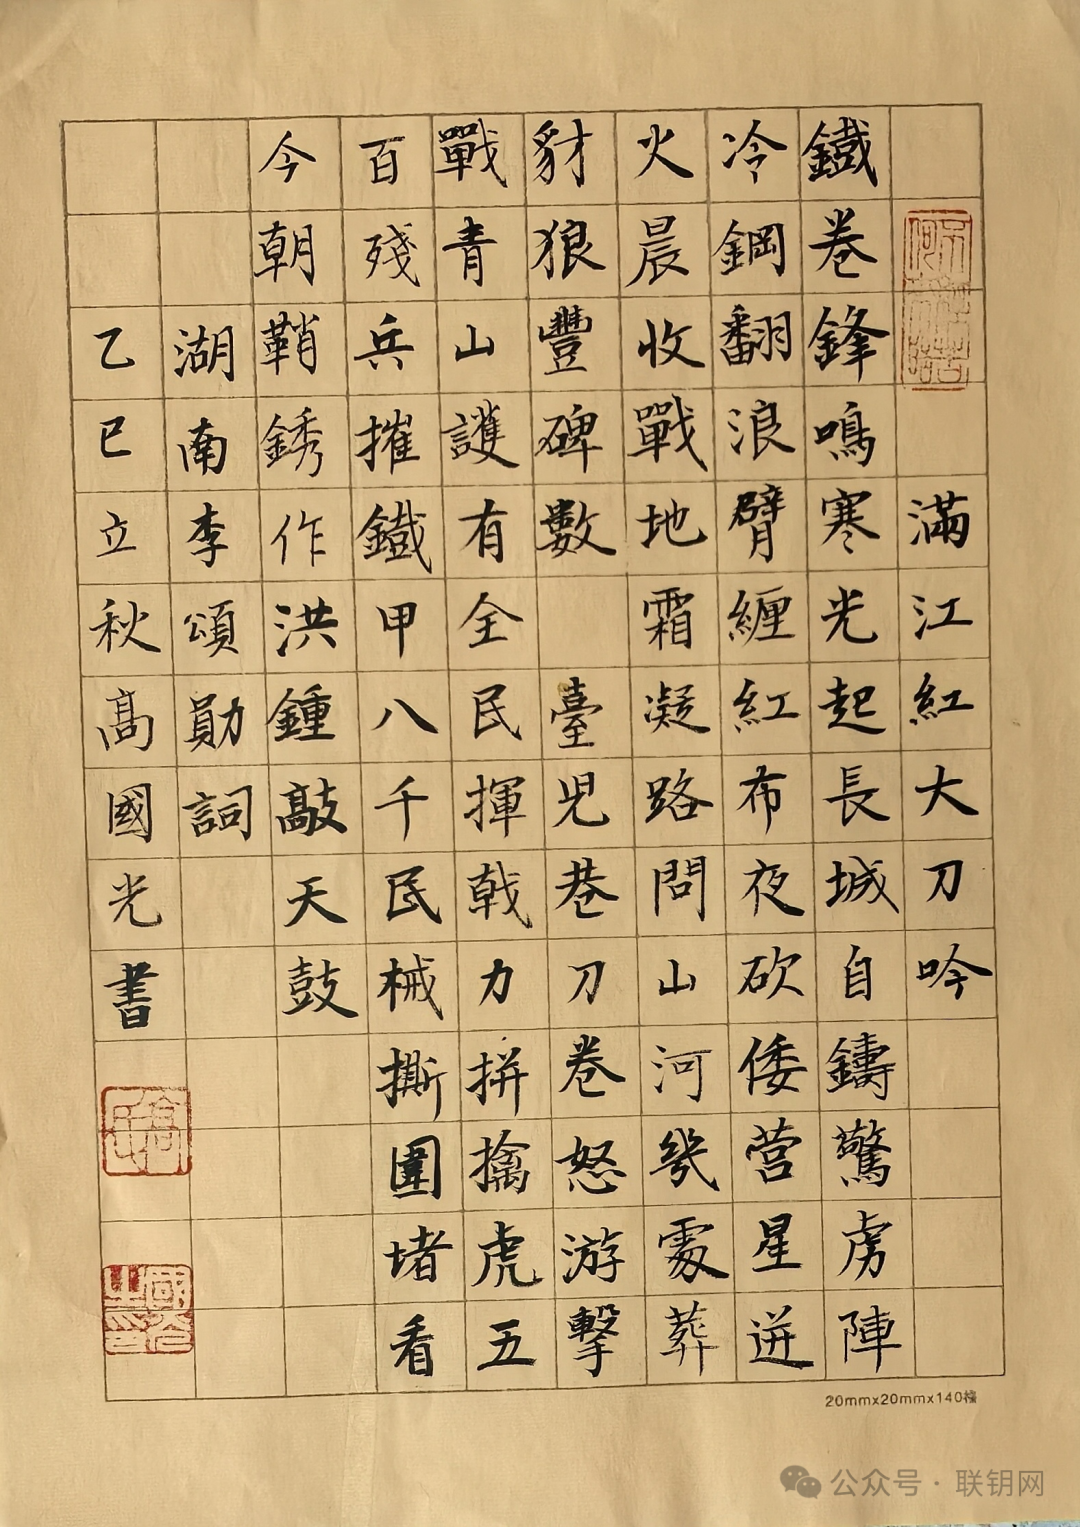 滿江紅大刀吟
鐵卷鋒鳴寒光起長城自鑄驚虜陣
冷鋼翻浪臂纏紅布夜砍倭营星迸
火晨收戰地霜凝路問山河幾處葬
豺狼豐碑數臺児巷刀卷怒游擊
戰青山護有全民揮戟力拼擒虎五
百殘兵摧鐵甲八千民械撕圍堵看
今朝鞘銹作洪鍾敲天鼓
湖南李頌勛詞
乙巳立秋高國光書
20mmx20mmx140格
公众号·联钥网